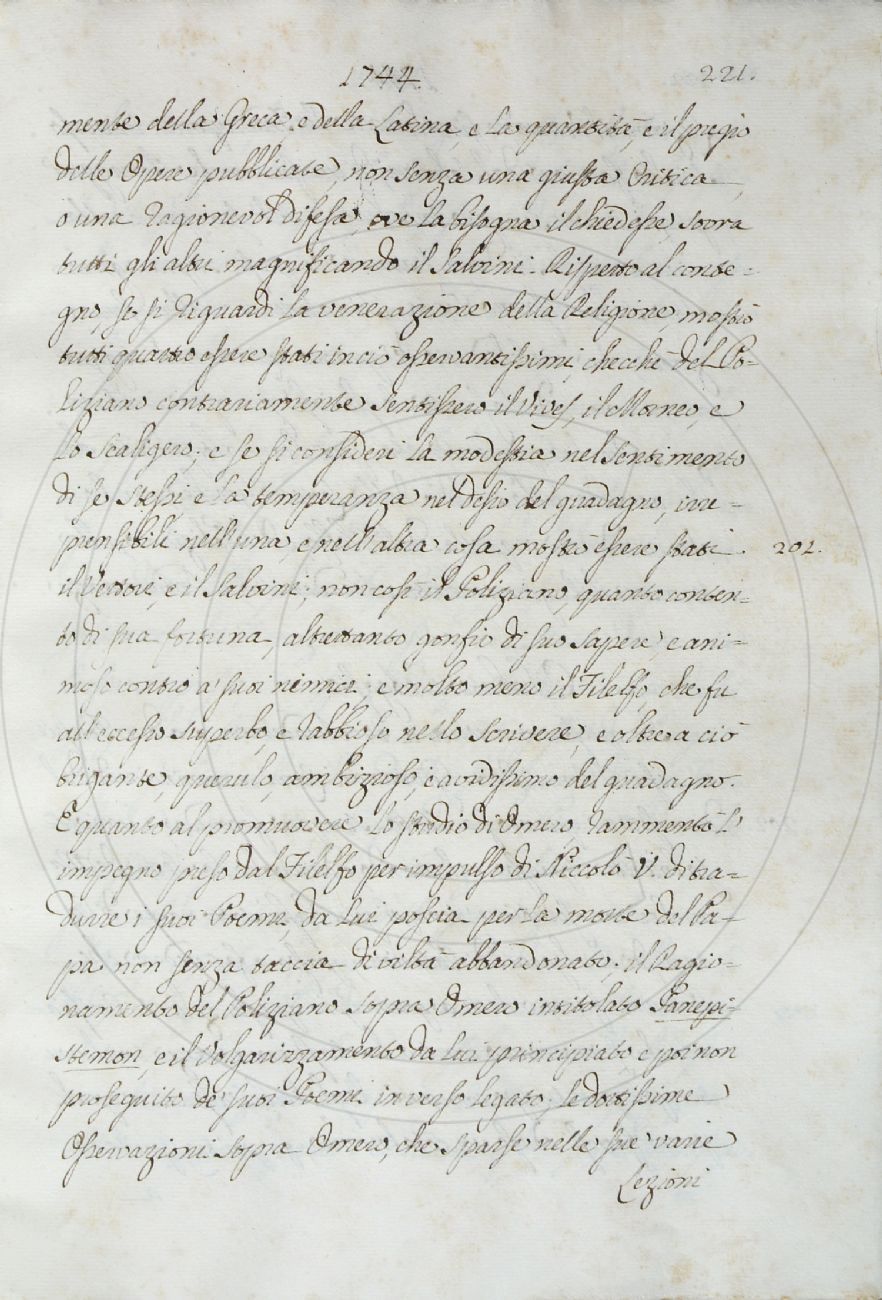 1744. 221.
mente della Greca, e della Latina, e la quantità, e il pregio
delle Opere pubblicate, non senza una giusta Critica,
o una ragionevol difesa, ove la bisogna il chiedesse, sovra
tutti gli altri magnificando il Salvini. Rispetto al conte=
gno, se si riguardi la venerazione della Religione, mostrò
tutti quattro essere stati in ciò osservantissimi, checchè del Po=
liziano contrariamente sentissero il Vives, il Morneo, e
lo Scaligero; e se si consideri la modestia nel sentimento
di se stessi, e la temperanza nel desio del guadagno, irre=
prensibili nell'una, e nell'altra cosa mostrò essere stati 202.
il Vettori, e il Salvini; non così il Poliziano, quanto conten=
to di sua fortuna, altrettanto gonfio di suo sapere, e ani=
moso contro a' suoi nimici; e molto meno il Filelfo, che fu
all'eccesso superbo, e rabbioso nello scrivere, e oltre a ciò
brigante, querulo, ambizioso, e avidissimo del guadagno.
E quanto al promuovere lo studio di Omero rammentò l'
impegno preso dal Filelfo per impulso di Niccolò V. di tra=
durre i suoi Poemi, da lui poscia per la morte del Pa=
pa non senza taccia di viltà abbandonato; il Ragio=
namento del Poliziano sopra Omero intitolato Panepi=
stemon, e il Volgarizzamento da lui principiato, e poi non
proseguito de' suoi Poemi in verso legato; le dottissime
Osservazioni sopra Omero, che sparse nelle sue varie
Lezioni